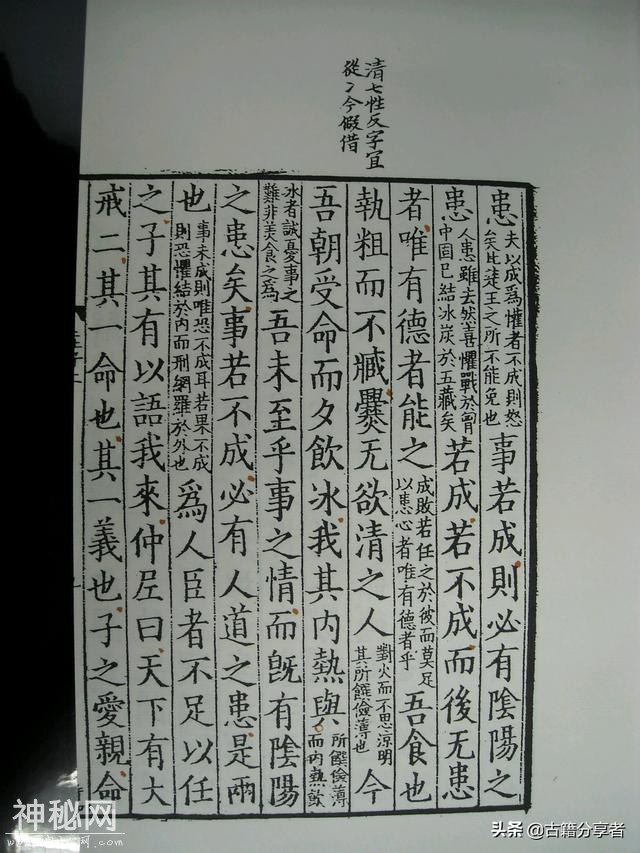 清七性反字宜
從冫今假借
患夫以成爲懽者不成則怒矣此楚王之所不能免也事若成則必有陰陽之
患人患雖去然喜懼戰於胷中固已結冰炭於五藏矣若成若不成而後无患
者唯有德者能之成敗若任之於彼而莫足以患心者唯有德者乎吾食也
執粗而不臧爨无欲清之人對火而不思涼明其所饌儉薄也今
吾朝受命而夕飲冰我其内熱與所饌儉薄而内熱飲
冰者誠憂事之難非美食之爲吾未至乎事之情而旣有陰陽
之患矣事若不成必有人道之患是兩
也事未成則唯恐不成耳若果不成則恐懼結於内而刑網羅於外也爲人臣者不足以任
之子其有以語我來仲尼曰天下有大
戒二其一命也其一義也子之愛親命
神秘网
头条 @古籍分享者